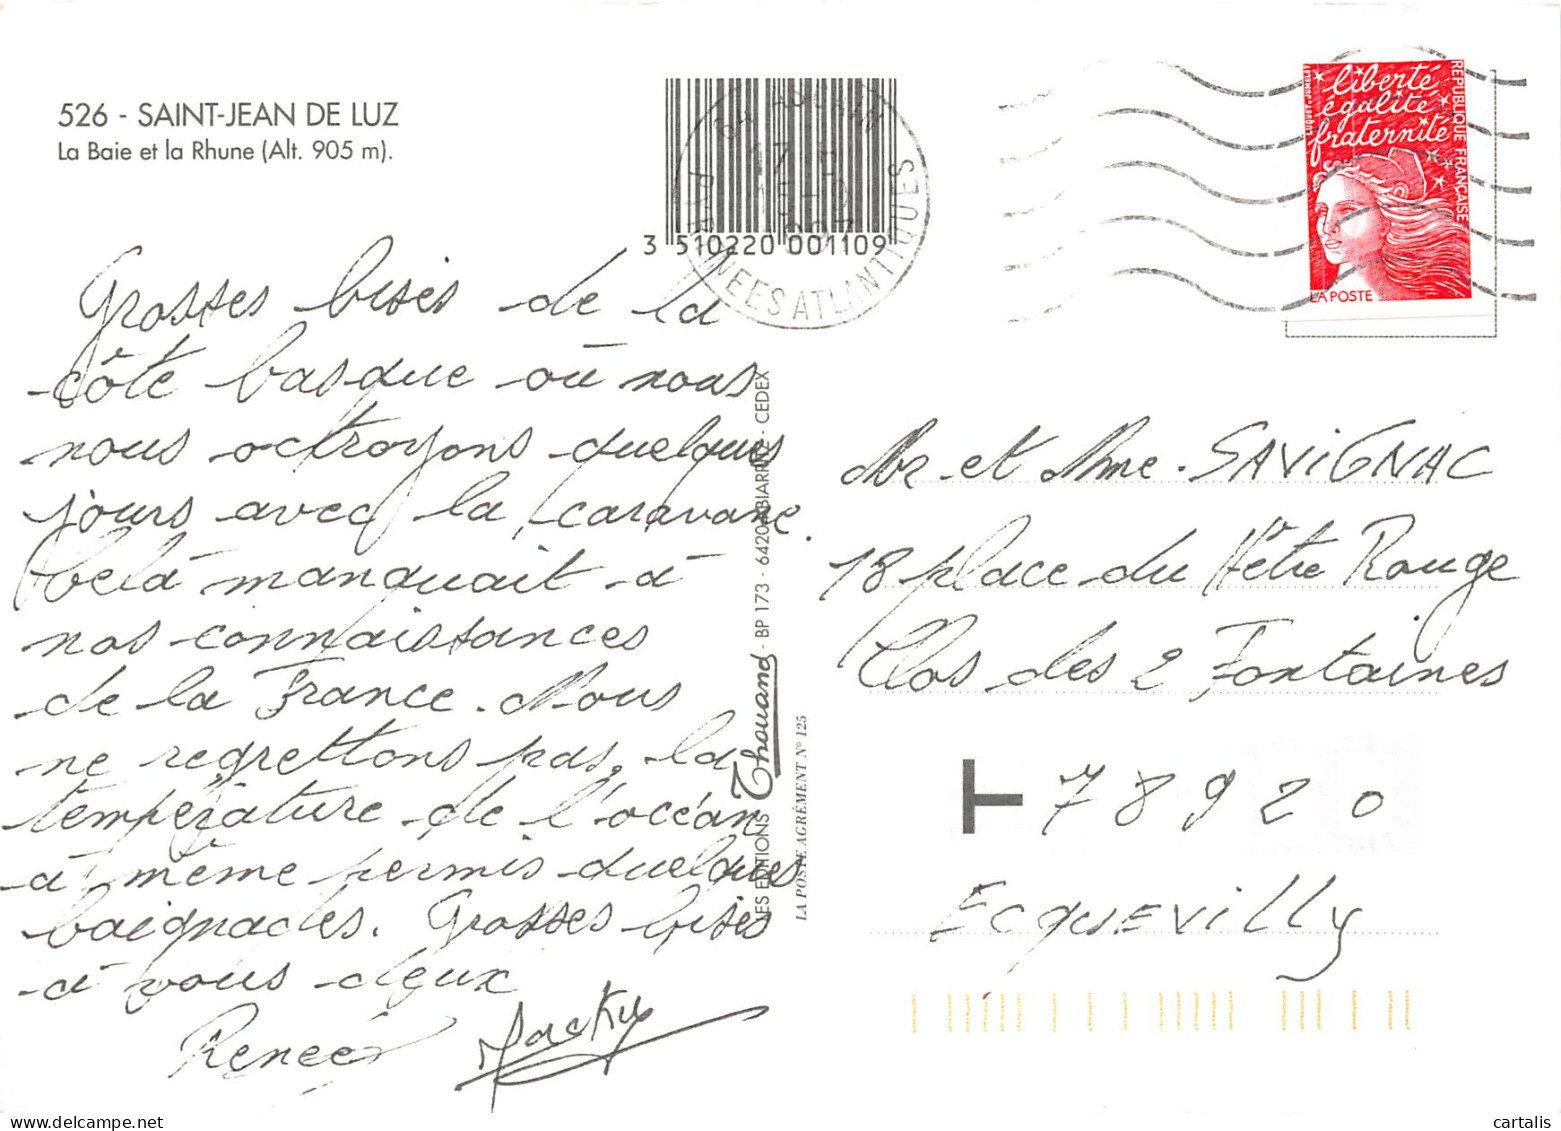 526 - SAINT-JEAN DE LUZ
La Baie et la Rhune (Alt. 905 m).
3 510220 001109
PYRENEES ATLANTIQUES
liberté
égalité
fraternité
REPUBLIQUE FRANÇAISE
LUQUET-JUMELET
LA POSTE
Grosses bises de la
côte basque où nous
nous octroyons quelques
jours avec la caravane.
Celà manquait à
nos connaissances
de la France. Nous
ne regrettons pas, la
température de l'océan
a même permis quelques
baignades. Grosses bises
à vous deux
Renée Jacky
LES EDITIONS Thouand - BP 173 - 64204 BIARRITZ - CEDEX
LA POSTE AGRÉMENT N° 125
Mr et Mme. SAViGNAC
18 place du Hêtre Rouge
Clos des 2 Fontaines
T 78920
ECQUEVilly
cartalis